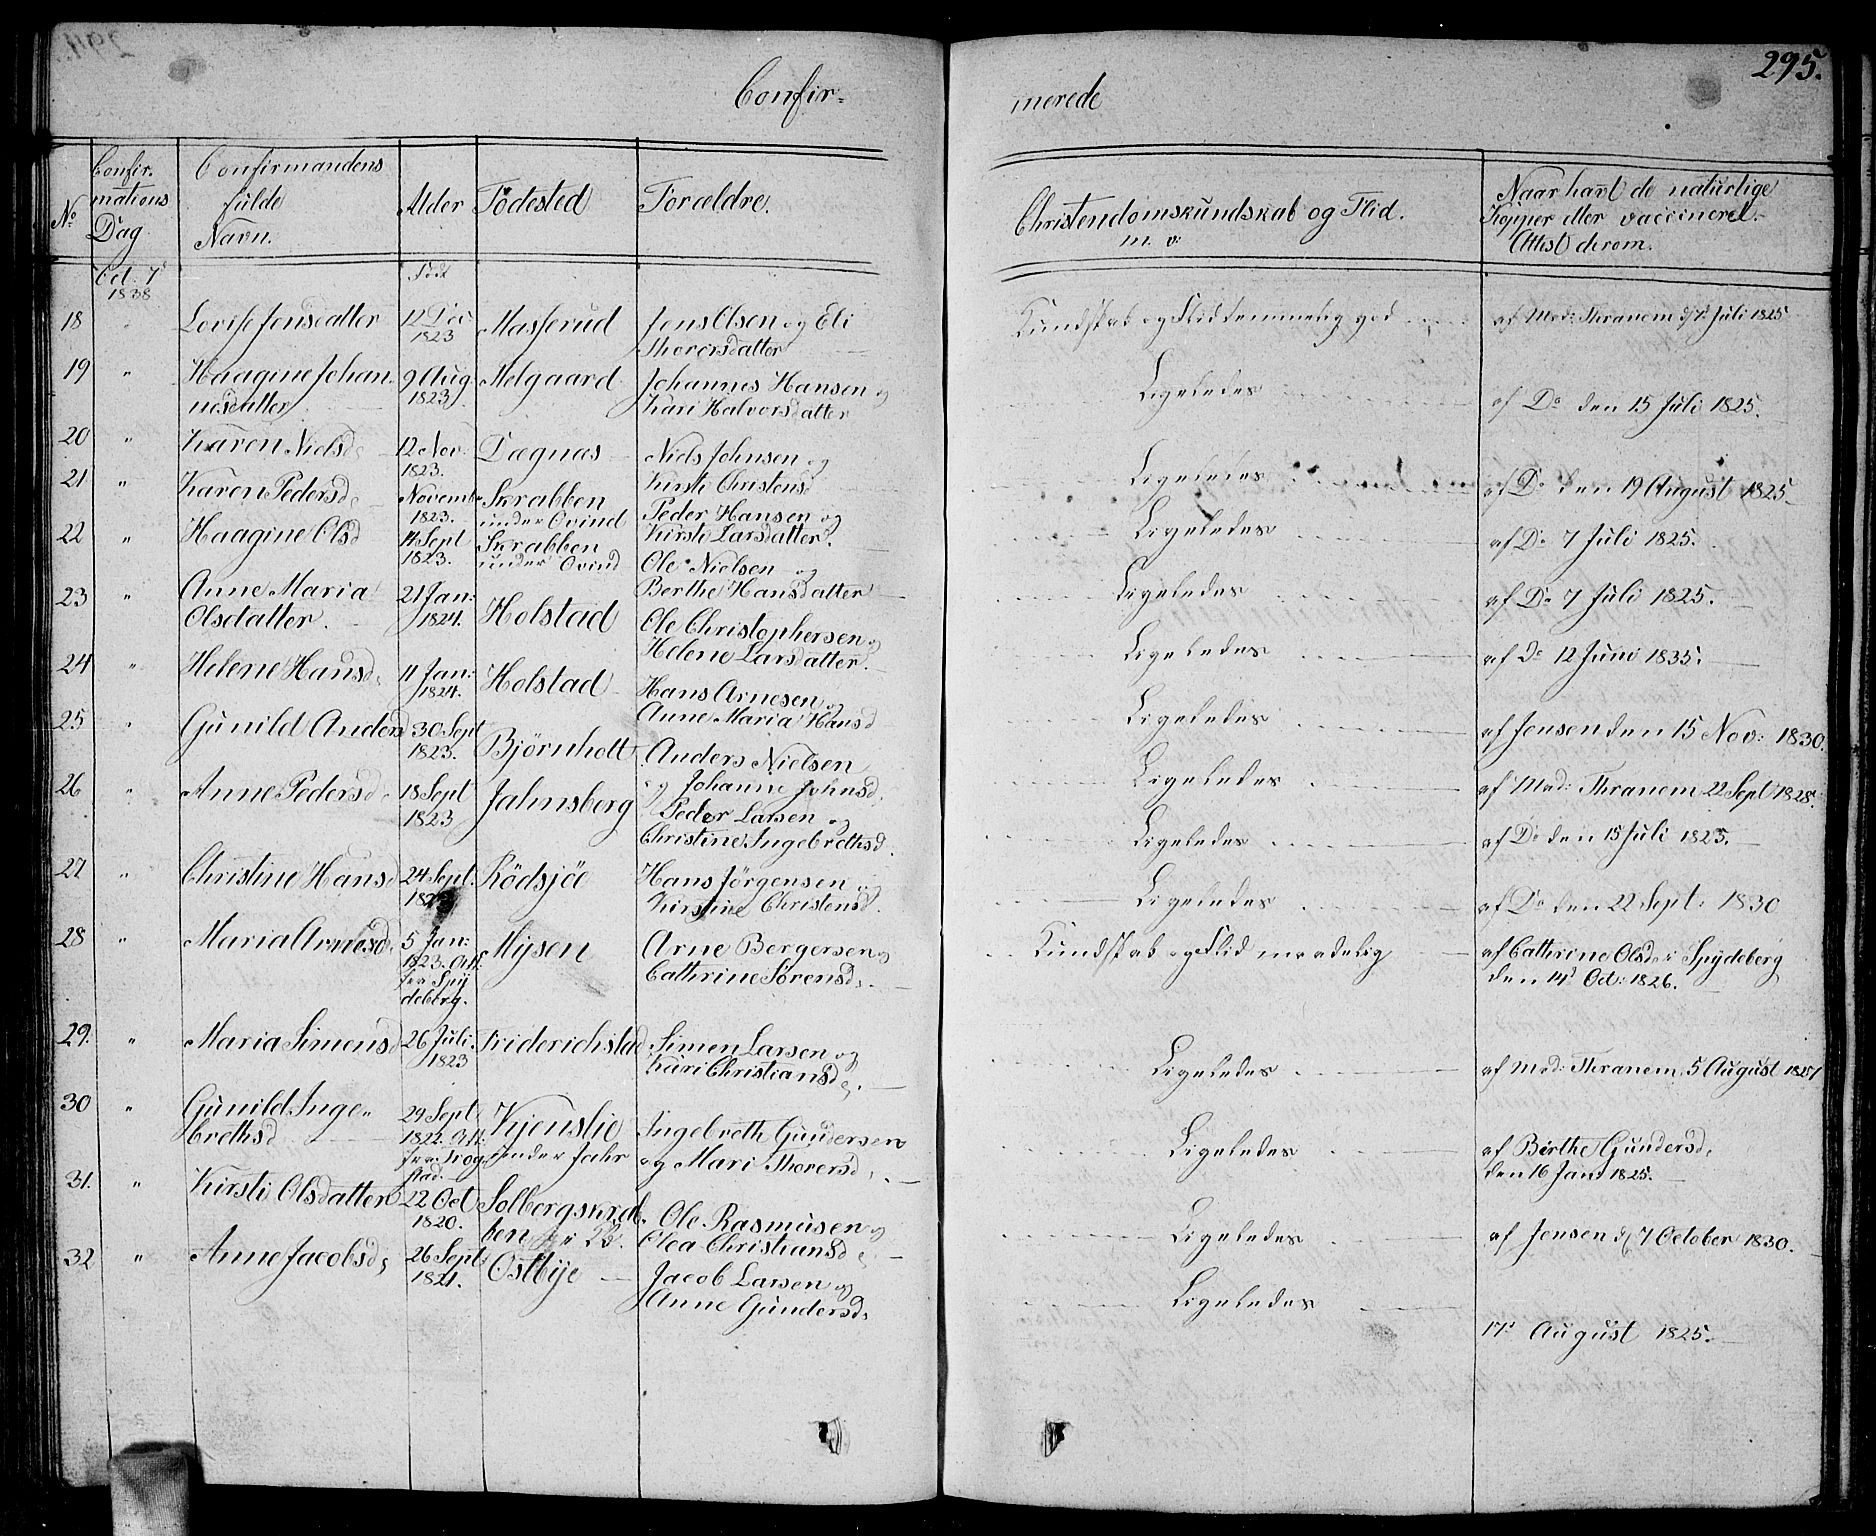 295.
Confir-
merede
No
Confir-
mations
Dag
Confirmandens
fulde
Navn.
Alder
Födested
Forældre.
Christendomskundskab og Flid.
m. v:
Naar havt de naturlige
Kopper eller vaccineret.
Attest derom.
Oct. 7d
1838
Född
18 " Lovise Jensdatter 12 Dec Masserud Jens Olsen og Eli Kundskab og Flid temmelig god af Mad: Thranem d/ 7 Juli 1825
1823 Thorersdatter
19 " Haagine Johan- 9 Aug Melgaard Johannes Hansen og Ligeledes af Do den 15 Juli 1825.
nesdatter 1823 Kari Halvorsdatter
20 " Karen Nielsd. 12 Nov. Dægnæs Niels Johnsen og Ligeledes af Do den 19 August 1825
1823. Kirsti Christensd
21 " Karen Pedersd. Novemb. Skrabben Peder Hansen og Ligeledes af Do 7 Juli 1825.
1823. under Ovind Kirsti Larsdatter.
22 " Haagine Olsd 14 Sept Skrabben Ole Nielsen og Ligeledes af Do 7 Juli 1825.
1823. under Ovind Berthe Hansdatter
23 " Anne Maria 21 Jan: Holstad Ole Christophersen og Ligeledes af Do 12 Juni 1835.
Olsdatter. 1824. Helene Larsdatter.
24 " Helene Hansd. 11 Jan: Holstad Hans Arnesen og Ligeledes af Jensen den 15 Nov: 1830.
1824. Anne Maria Hansd
25 " Gunild Andersd 30 Sept Björnholt Anders Nielsen Ligeledes af Mad: Thranem 22 Sept 1828.
1823. og Johanne Johnsd.
26 " Anne Pedersd. 18 Sept Jahnsberg Peder Larsen og Ligeledes af Do den 15 Juli 1825.
1823 Christine Ingebrethsd.
27 " Christine Hansd 24 Sept. Rödsjöe Hans Jörgensen og Ligeledes af Do den 22 Sept: 1830
Kirstine Christensd.
28 " Maria Arnesd. 5 Jan: Mysen Arne Bergersen og Kundskab og Flid maadelig af Cathrine Olsd. i Spydeberg
1823. Att. Cathrine Sörensd. den 14d Oct: 1826.
fra Spy
deberg.
29. " Maria Simensd 26 Juli. Friderichstad Simen Larsen og Ligeledes af Mad: Thranem 5 August 1827
1823 Kari Christiansd.
30 " Gunild Inge- 29 Sept Kjenslie Ingebreth Gundersen Ligeledes af Birthe Gundersd.
brethsd 1822. Att: under Jahr og Mari Thorersd. den 16 Jan 1825.
fra Trog
stad.
31. " Kirsti Olsdatter 22 Oct Solbergskrab- Ole Rasmusen og Ligeledes af Jensen d/ 7 October 1830.
1820. ben Olea Christiansd.
32 " Anne Jacobsd. 26 Sept Ostbye Jacob Larsen og Ligeledes 17d August 1825.
1821. Anne Gundersd.